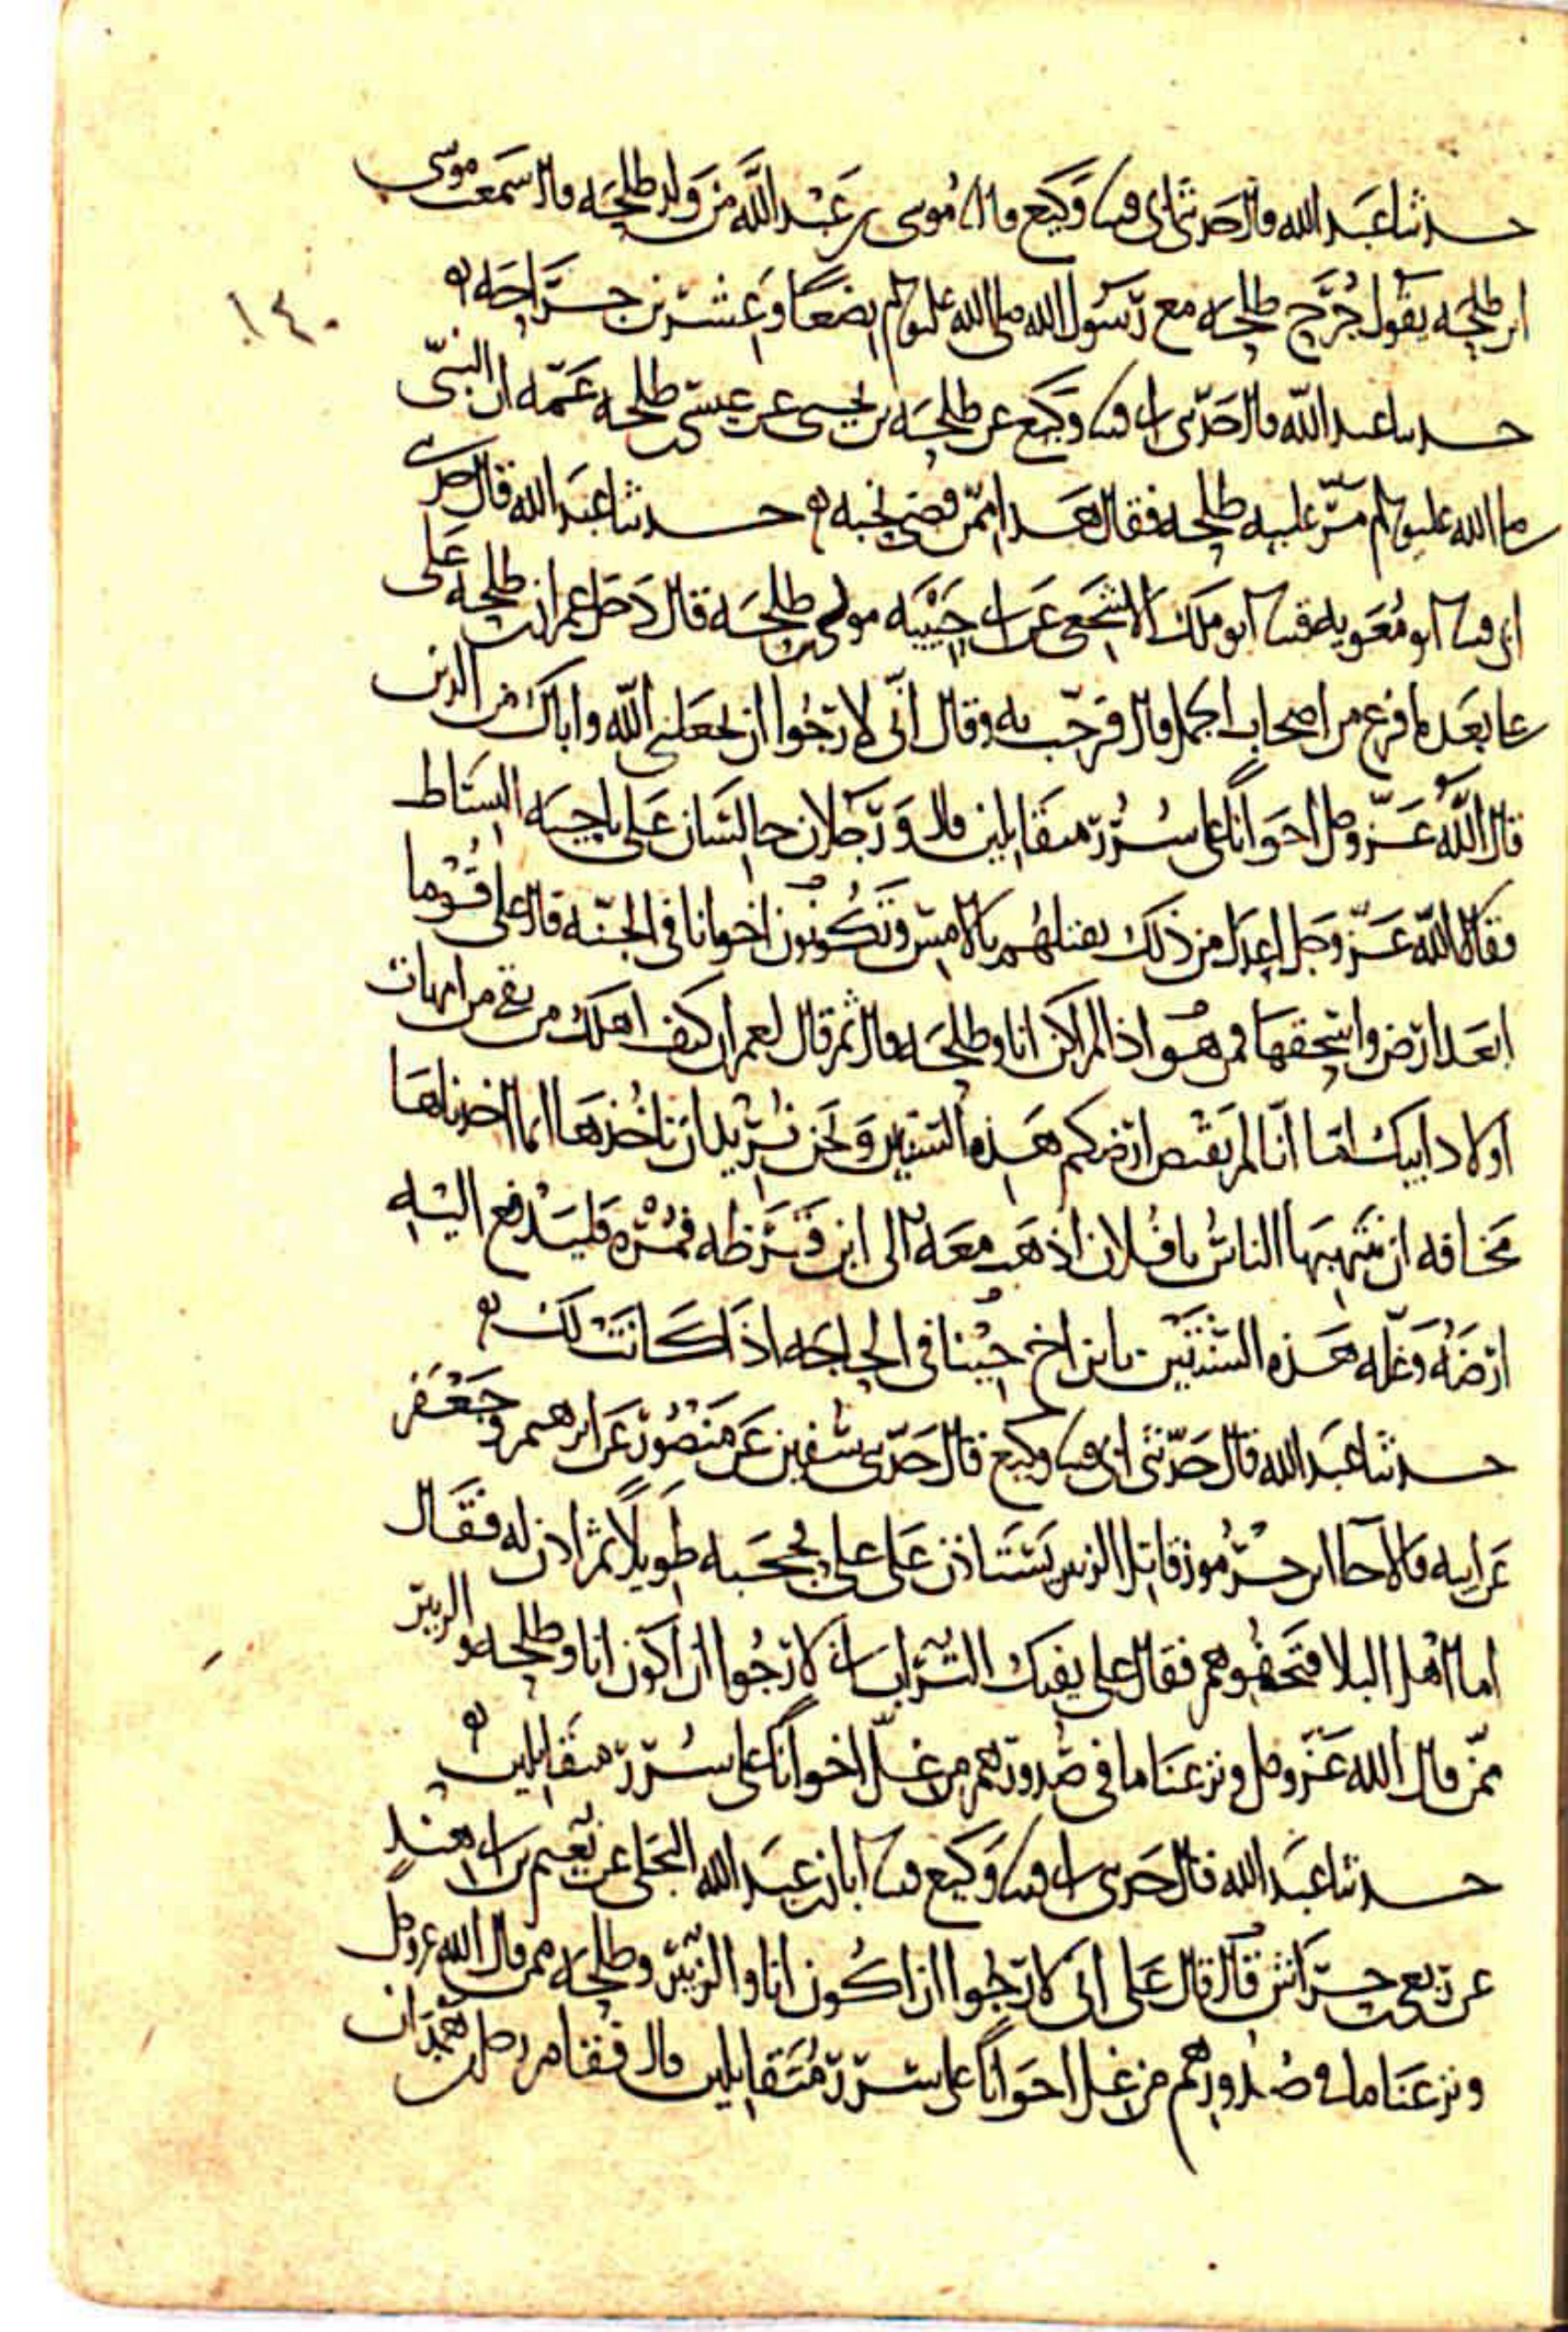 حدثنا عبد الله قال حدثني ابي قثنا وكيع قال نا موسى بن عبد الله من ولد طلحه قال سمعت موسى
ابن طلحه يقول جرح طلحه مع رسول الله صلى الله عليه وسلم بضعا وعشرين جراحه
حدثنا عبد الله قال حدثني ابي قثنا وكيع عن طلحه بن يحيى عن عيسى بن طلحه عمه ان النبي
صلى الله عليه وسلم مر عليه طلحه فقال هذا ممن قضى نحبه حدثنا عبد الله قال حدثني
ابي قثنا ابو معويه قثنا ابو ملك الاشجعي عن ابي حبيبه مولى طلحه قال دخل عمران بن طلحه على
علي بعدما فرغ من اصحاب الجمل قال فرحب به وقال اني لارجوا ان يجعلني الله واباك من الذين
قال الله عز وجل اخوانا على سرر متقابلين قال ورجلان جالسان على ناحيه البساط
فقالا الله عز وجل اعدل من ذلك تقتلهم بالامس وتكونون اخوانا في الجنه قال علي قوما
ابعد ارض واسحقها فمن هو اذا لم اكن انا وطلحه قال ثم قال لعمران كيف اهلك من بقي من امهات
اولاد ابيك اما انا لم نقبض ارضكم هذه السنين ونحن نريد ان ناخذها انما اخذناها
مخافه ان ينتهبها الناس يا فلان اذهب معه الى ابن قرظه فمره فليدفع اليه
ارضه وغله هذه السنين يا بن اخ جينا في الحاجه اذا كانت لك
حدثنا عبد الله قال حدثني ابي قثنا وكيع قال حدثني سفين عن منصور عن ابرهيم وجعفر
عن ابيه قالا جا ابن جرموز قاتل الزبير يستاذن على علي فحجبه طويلا ثم اذن له فقال
اما اهل البلا فتجفوهم فقال علي بفيك التراب اني لارجوا ان اكون انا وطلحه والزبير
ممن قال الله عز وجل ونزعنا ما في صدورهم من غل اخوانا على سرر متقابلين
حدثنا عبد الله قال حدثني ابي قثنا وكيع قثنا ابان بن عبد الله البجلي عن نعيم بن ابي هند
عن ربعي بن حراش قال قال علي اني لارجوا ان اكون انا والزبير وطلحه ممن قال الله عز وجل
ونزعنا ما في صدورهم من غل اخوانا على سرر متقابلين قال فقام رجل من همدان
١٤٠